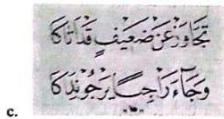 تَجَاوَزْ عَنْ ضَعِيْفٍ قَدْ اَتَاكَا
وَجَاءَ رَاجِيًا يَرْجُو نِدَاكَا
c.